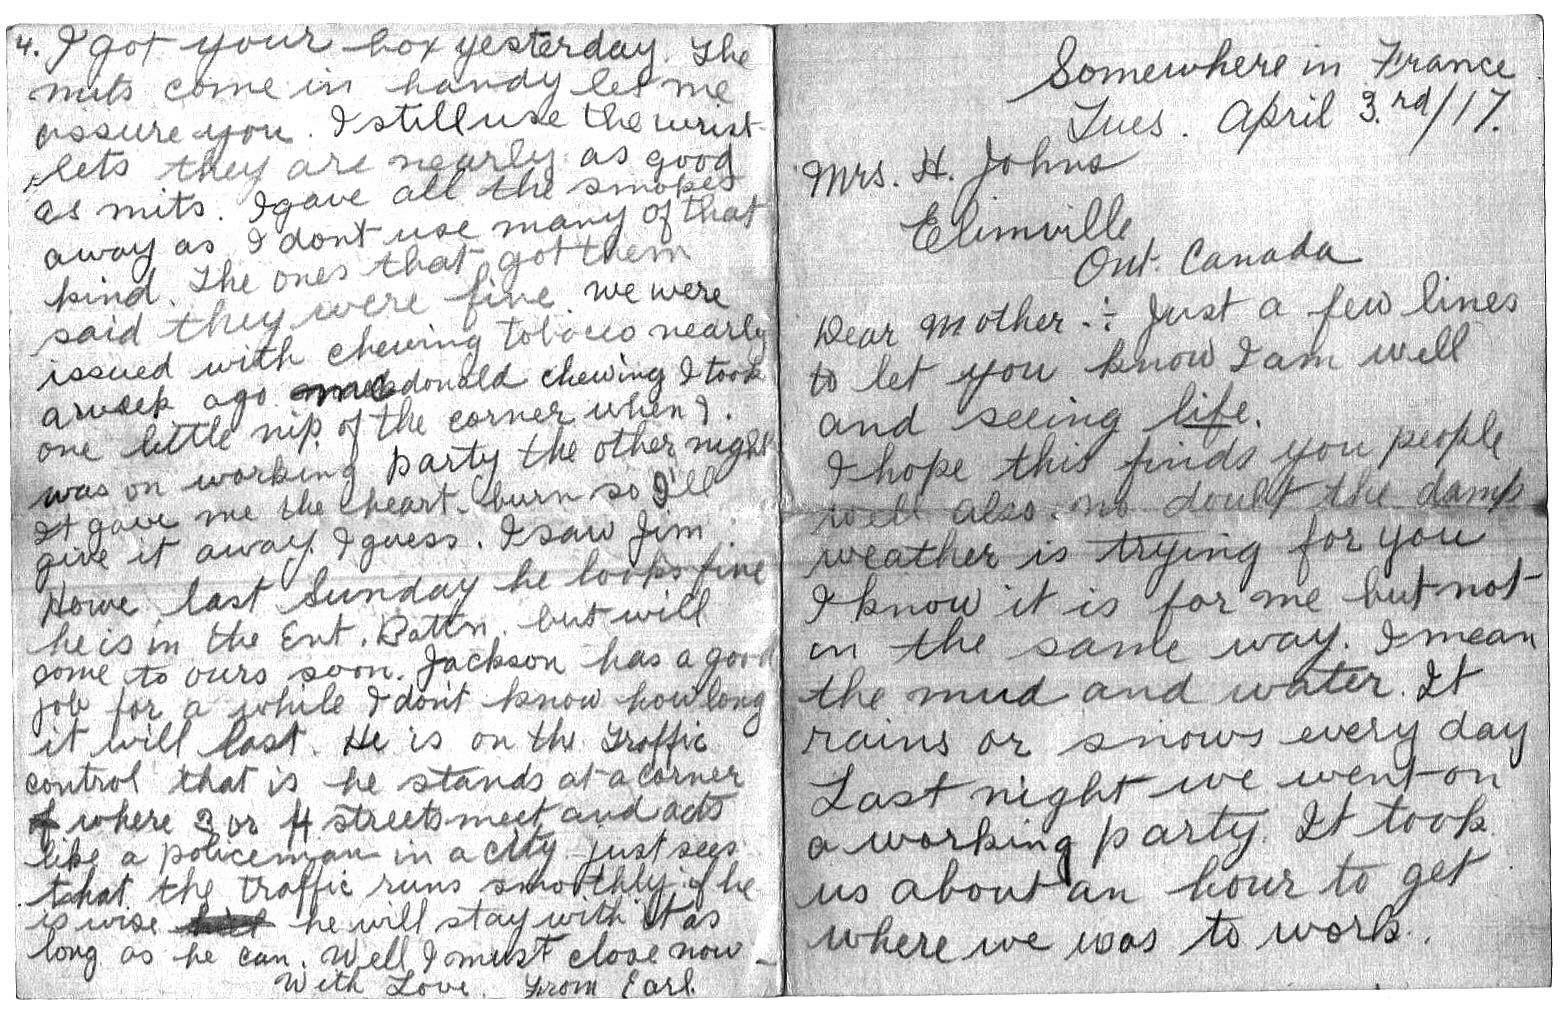 Somewhere in France
Tues. April 3.rd/17.
Mrs. H. Johns
Elimville
Ont. Canada
Dear Mother :- Just a few lines
to let you know I am well
and seeing life.
I hope this finds you people
well also. no doubt the damp
weather is trying for you
I know it is for me but not
in the same way. I mean
the mud and water. It
rains or snows every day
Last night we went on
a working party. It took
us about an hour to get
where we was to work.
4. I got your box yesterday. The
mits come in handy let me
assure you. I still use the wrist-
lets they are nearly as good
as mits. I gave all the smokes
away as I dont use many of that
kind. The ones that got them
said they were fine we were
issued with chewing tobacco nearly
a week ago macdonald chewing I took
one little nip of the corner when I
was on working party the other night
It gave me the heart-burn so I'll
give it away I guess. I saw Jim
Howe last Sunday he looks fine
he is in the Ent. Battn. but will
come to ours soon. Jackson has a good
job for a while I dont know how long
it will last. He is on the Traffic
control that is he stands at a corner
where 3 or 4 streets meet and acts
like a policeman in a city just sees
that the traffic runs smoothly, if he
is wise he will stay with it as
long as he can. Well I must close now
With Love. From Earl.